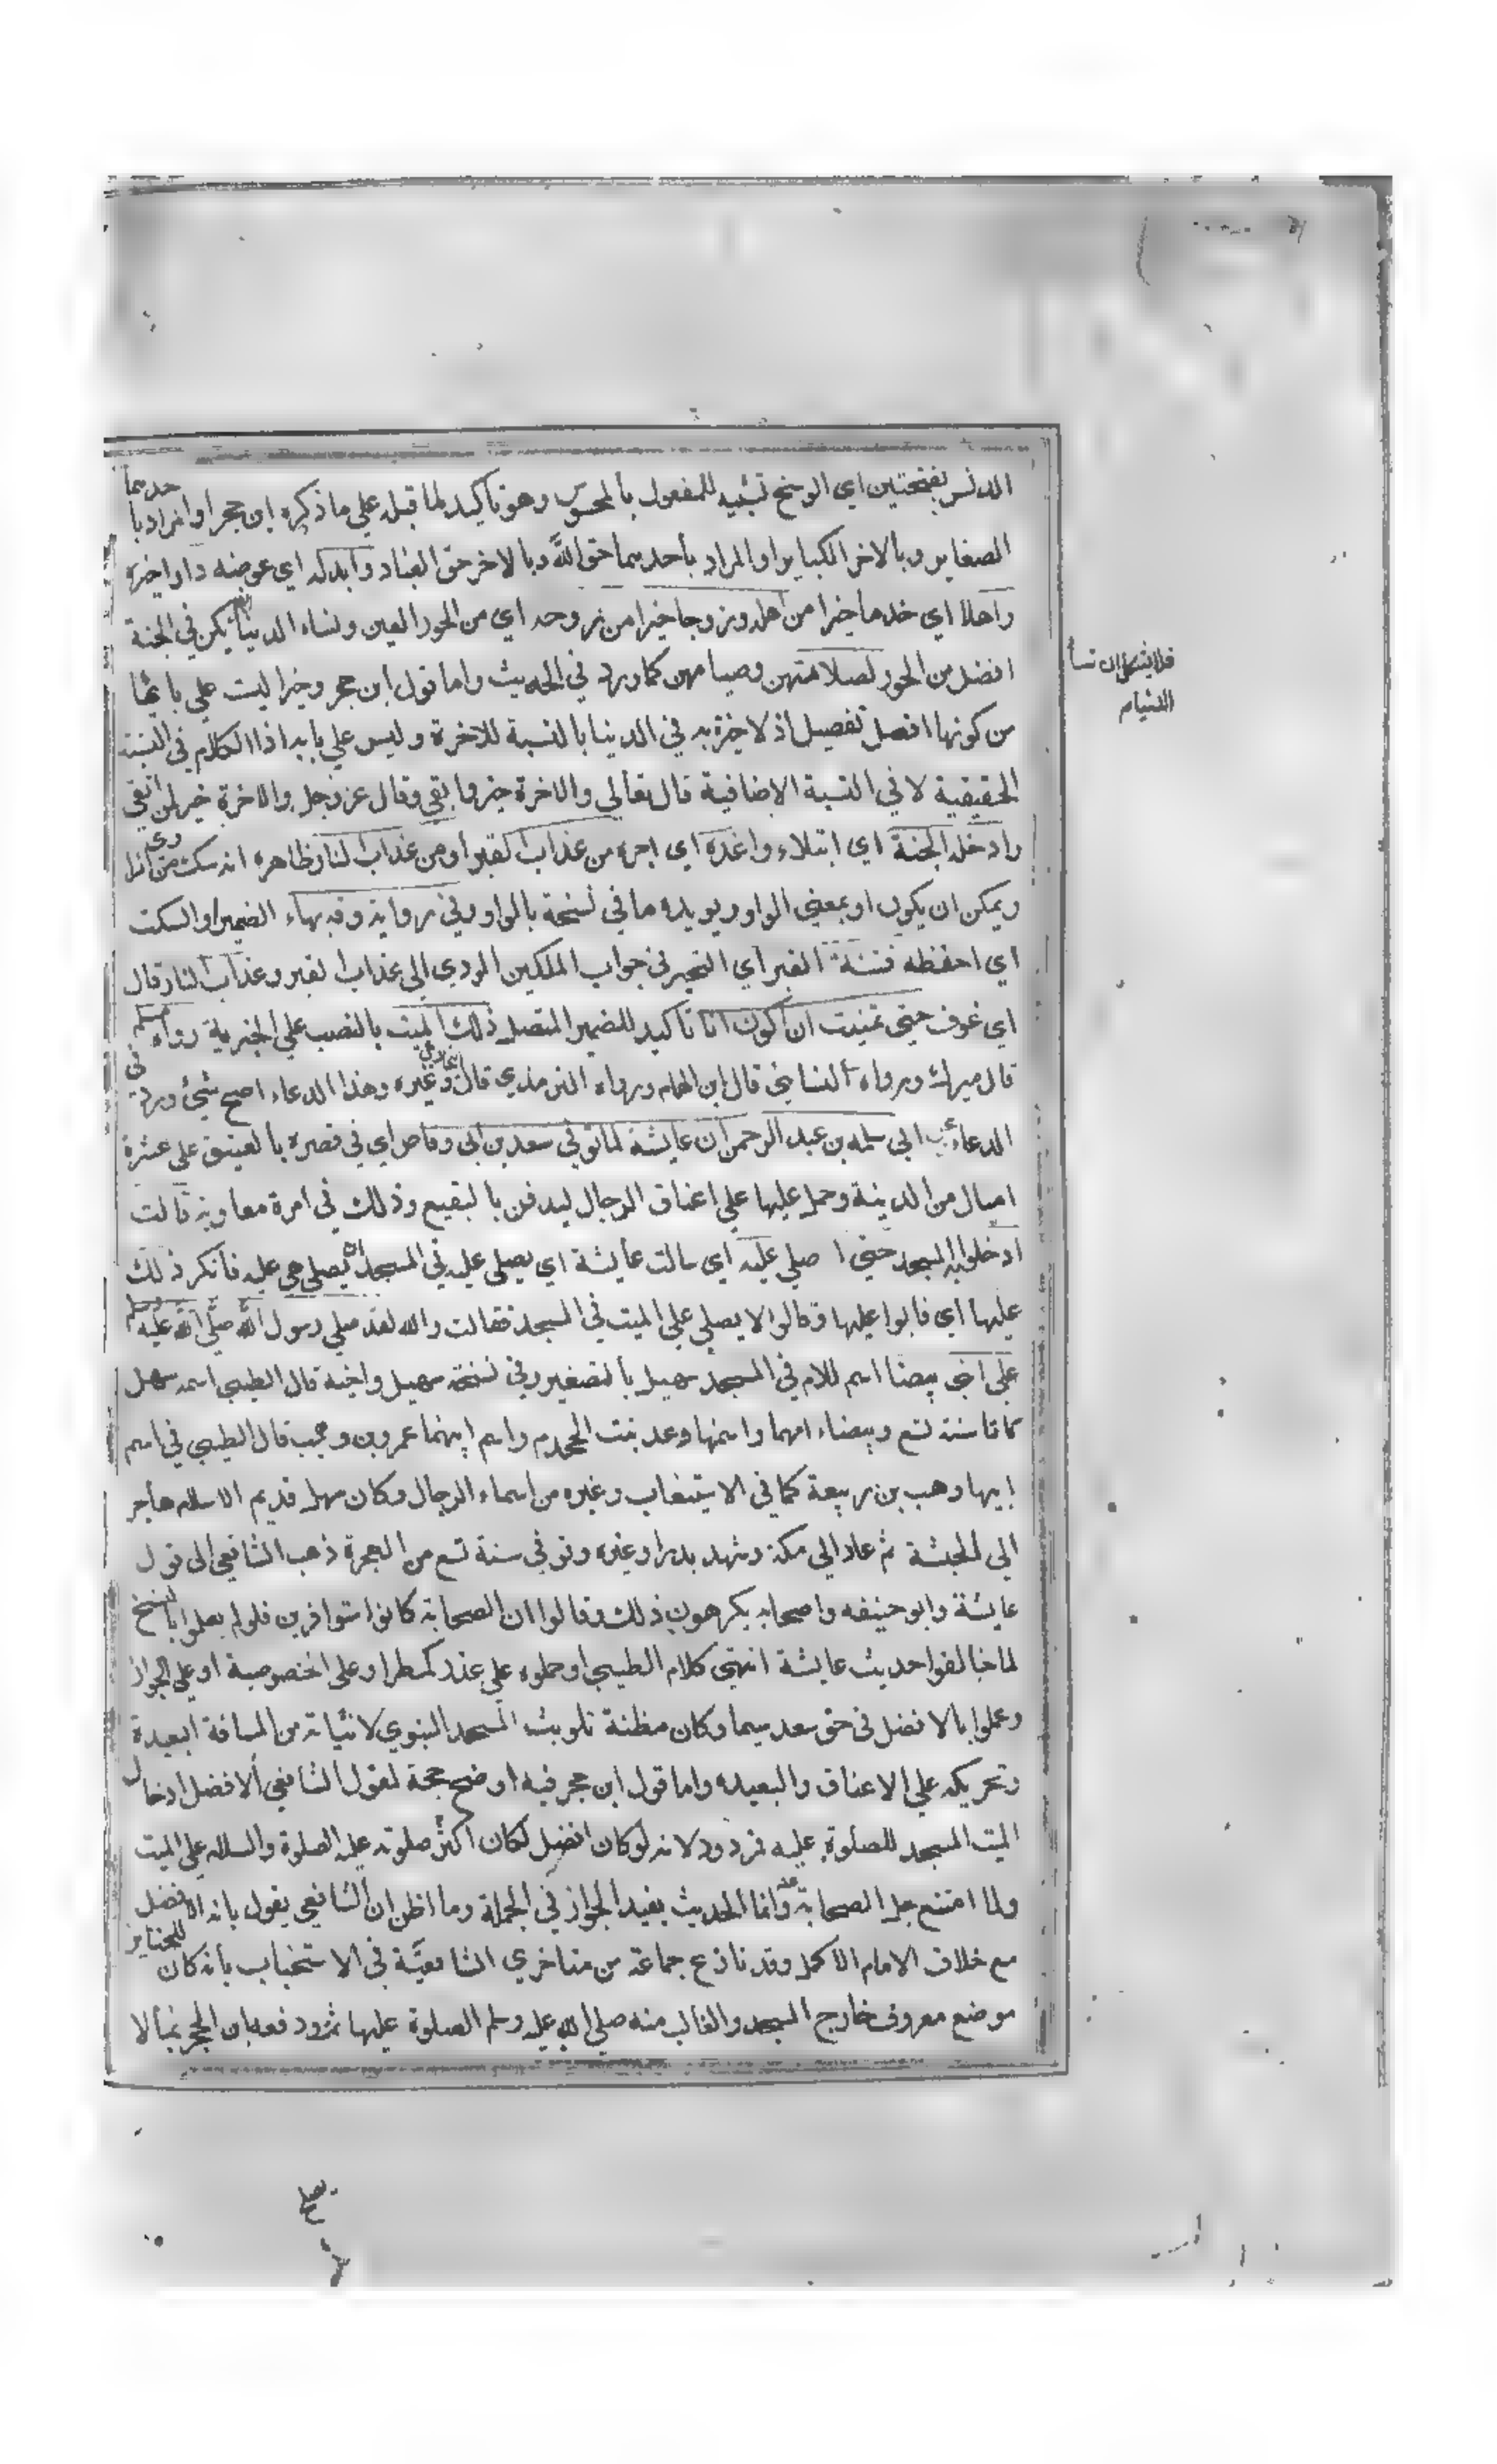 الدنس بفتحتين اي الوسخ تشبيه للمفعول بالمحسوس وهو تاكيد لما قبله علي ما ذكره ابن حجر او المراد باحديهما
الصغاير وبالاخر الكباير او المراد باحديهما حق الله وبالاخر حق العباد وابدله اي عوضه دارا خيرا
واهلا اي خدما خيرا من اهله وزوجا خيرا من زوجه اي من الحور العين ونساء الدنيا يكن في الجنة
افضل من الحور لصلاتهن وصيامهن كما ورد في الحديث واما قول ابن حجر وخيرا ليست علي بابها
من كونها افعل تفضيل اذ لا خيرية في الدنيا بالنسبة للاخرة وليس علي بابه اذا الكلام في النسبة
الحقيقية لا في النسبة الاضافية قال تعالي والاخرة خير وابقي وقال عز وجل والاخرة خير لمن اتقي
وادخله الجنة اي ابتلاء واعذه اي اجره من عذاب القبر او من عذاب النار ظاهره انه شك من الراوي
ويمكن ان يكون او بمعني الواو ويويده ما في نسخة بالواو وفي رواية وقه بهاء الضمير او السكت
اي احفظه فتنة القبر اي التحير في جواب الملكين المودي الي عذاب القبر وعذاب النار قال
اي عوف حتي تمنيت ان اكون انا تاكيد للضمير المتصل ذلك الميت بالنصب علي الخبرية رواه مسلم
قال ميرك ورواه النسايي قال ابن الهام ورواه الترمذي قال البخاري وغيره وهذا الدعاء اصح شيئ ورد في
الدعاء عن ابي سلمه بن عبد الرحمن ان عايشة لما توفي سعد بن ابي وقاص اي في قصره بالعقيق علي عشرة
اميال من المدينة وحمل عليها علي اعناق الرجال ليدفن بالبقيع وذلك في امرة معاوية قالت
ادخلوا به المسجد حتي اصلي عليه اي سالت عايشة اي يصلي عليه في المسجد ان يصلي هي عليه فانكر ذلك
عليها اي فابوا عليها وقالوا لا يصلي علي الميت في المسجد فقالت والله لقد صلي رسول الله صلي الله عليه وسلم
علي ابني بيضا اسم للام في المسجد سهيل بالتصغير وفي نسخة سهيل واخيه قال الطيبي اسمه سهل
ماتا سنة تسع وبيضاء امهما واسمها وعد بنت الجحدم واسم ابيهما عمرو بن وهب قال الطيبي في اسم
ابيها وهب بن ربيعة كما في الاستيعاب وغيره من اسماء الرجال وكان سهل قديم الاسلام هاجر
الي الحبشة ثم عاد الي مكة وشهد بدرا وغيره وتوفي سنة تسع من الهجرة ذهب الشافعي الي قول
عايشة وابو حنيفه واصحابه يكرهون ذلك وقالوا ان الصحابة كانوا متوافرين فلو لم يعلموا بالنسخ
لما خالفوا حديث عايشة انتهي كلام الطيبي او حملوه علي عذر كمطر او علي الخصوصية او علي الجواز
وعملوا بالافضل في حق سعد سيما وكان مظنة تلويث المسجد النبوي لاتيانه من المسافة البعيدة
وتحريكه علي الاعناق والبعيده واما قول ابن حجر فيه اوضح حجة لقول الشافعي الافضل ادخال
الميت المسجد للصلوة عليه فمردود لانه لو كان افضل لكان اكثر صلوته عليه الصلوة والسلام علي الميت
ولما امتنع جل الصحابة عنه وانما الحديث يفيد الجواز في الجملة وما اظن ان الشافعي يقول بانه الافضل
مع خلاف الامام الاكمل وقد نازع جماعة من متاخري الشافعية في الاستحباب بانه كان للجنايز
موضع معروف خارج المسجد والغالب منه صلي الله عليه وسلم الصلوة عليها ثمه ودفعه ابن الحجر بما لا
فلا يشكل ان نسأ